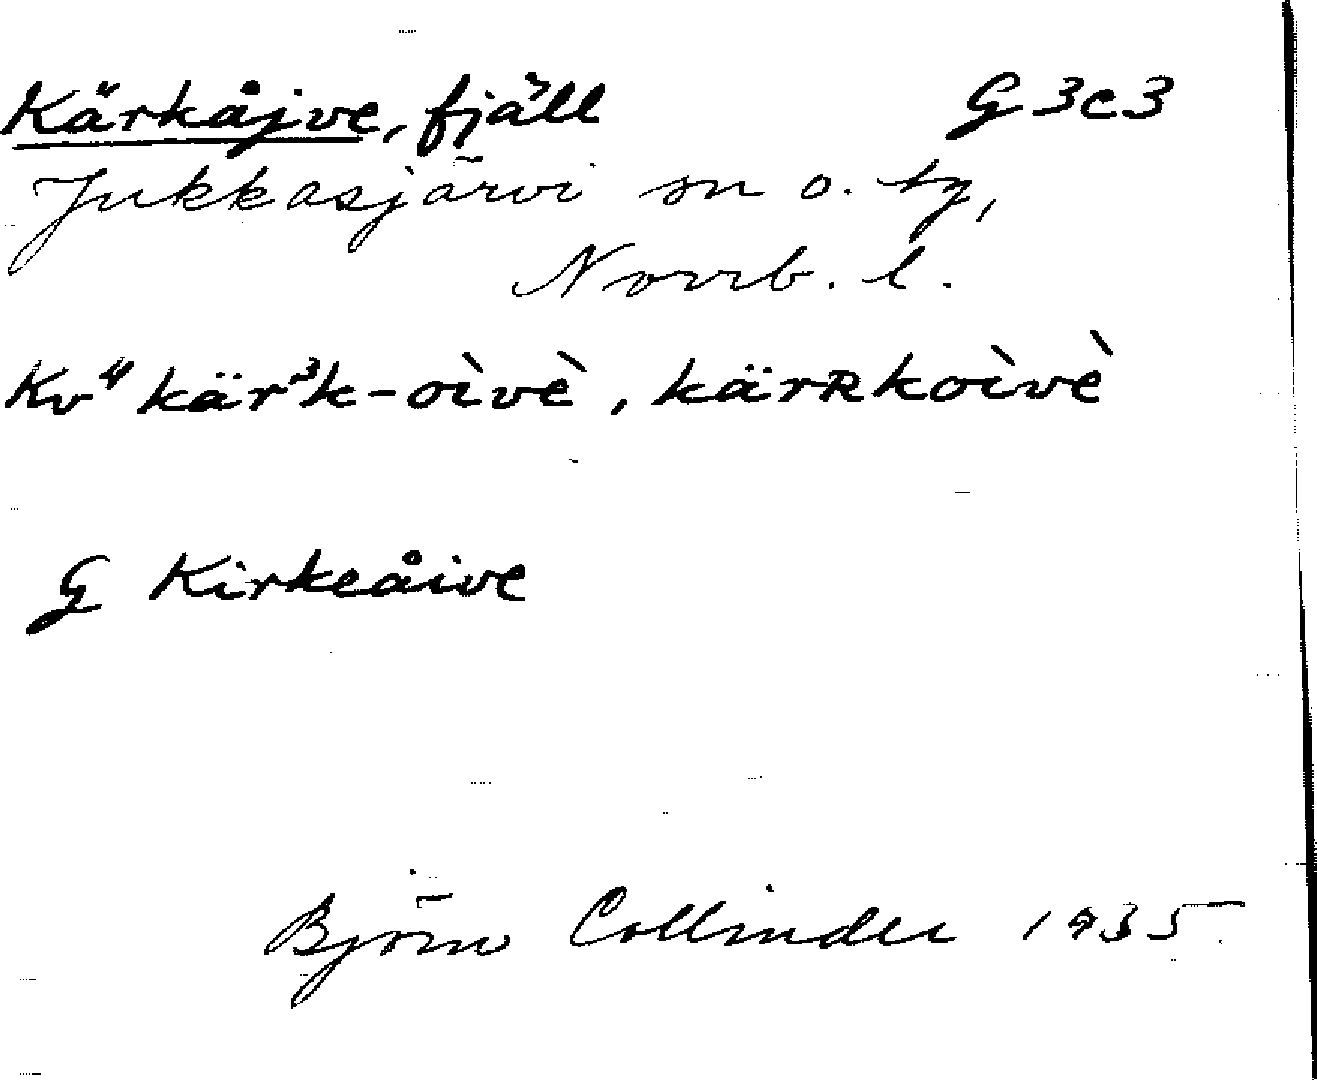 Kärkåjve, fjäll G3c3
Jukkasjärvi sn o. tg,
Norrb. l.
Kv⁴ kär³k-oìvè, kärʀkoìvè
G Kirkeåive
Björn Collinder 1935